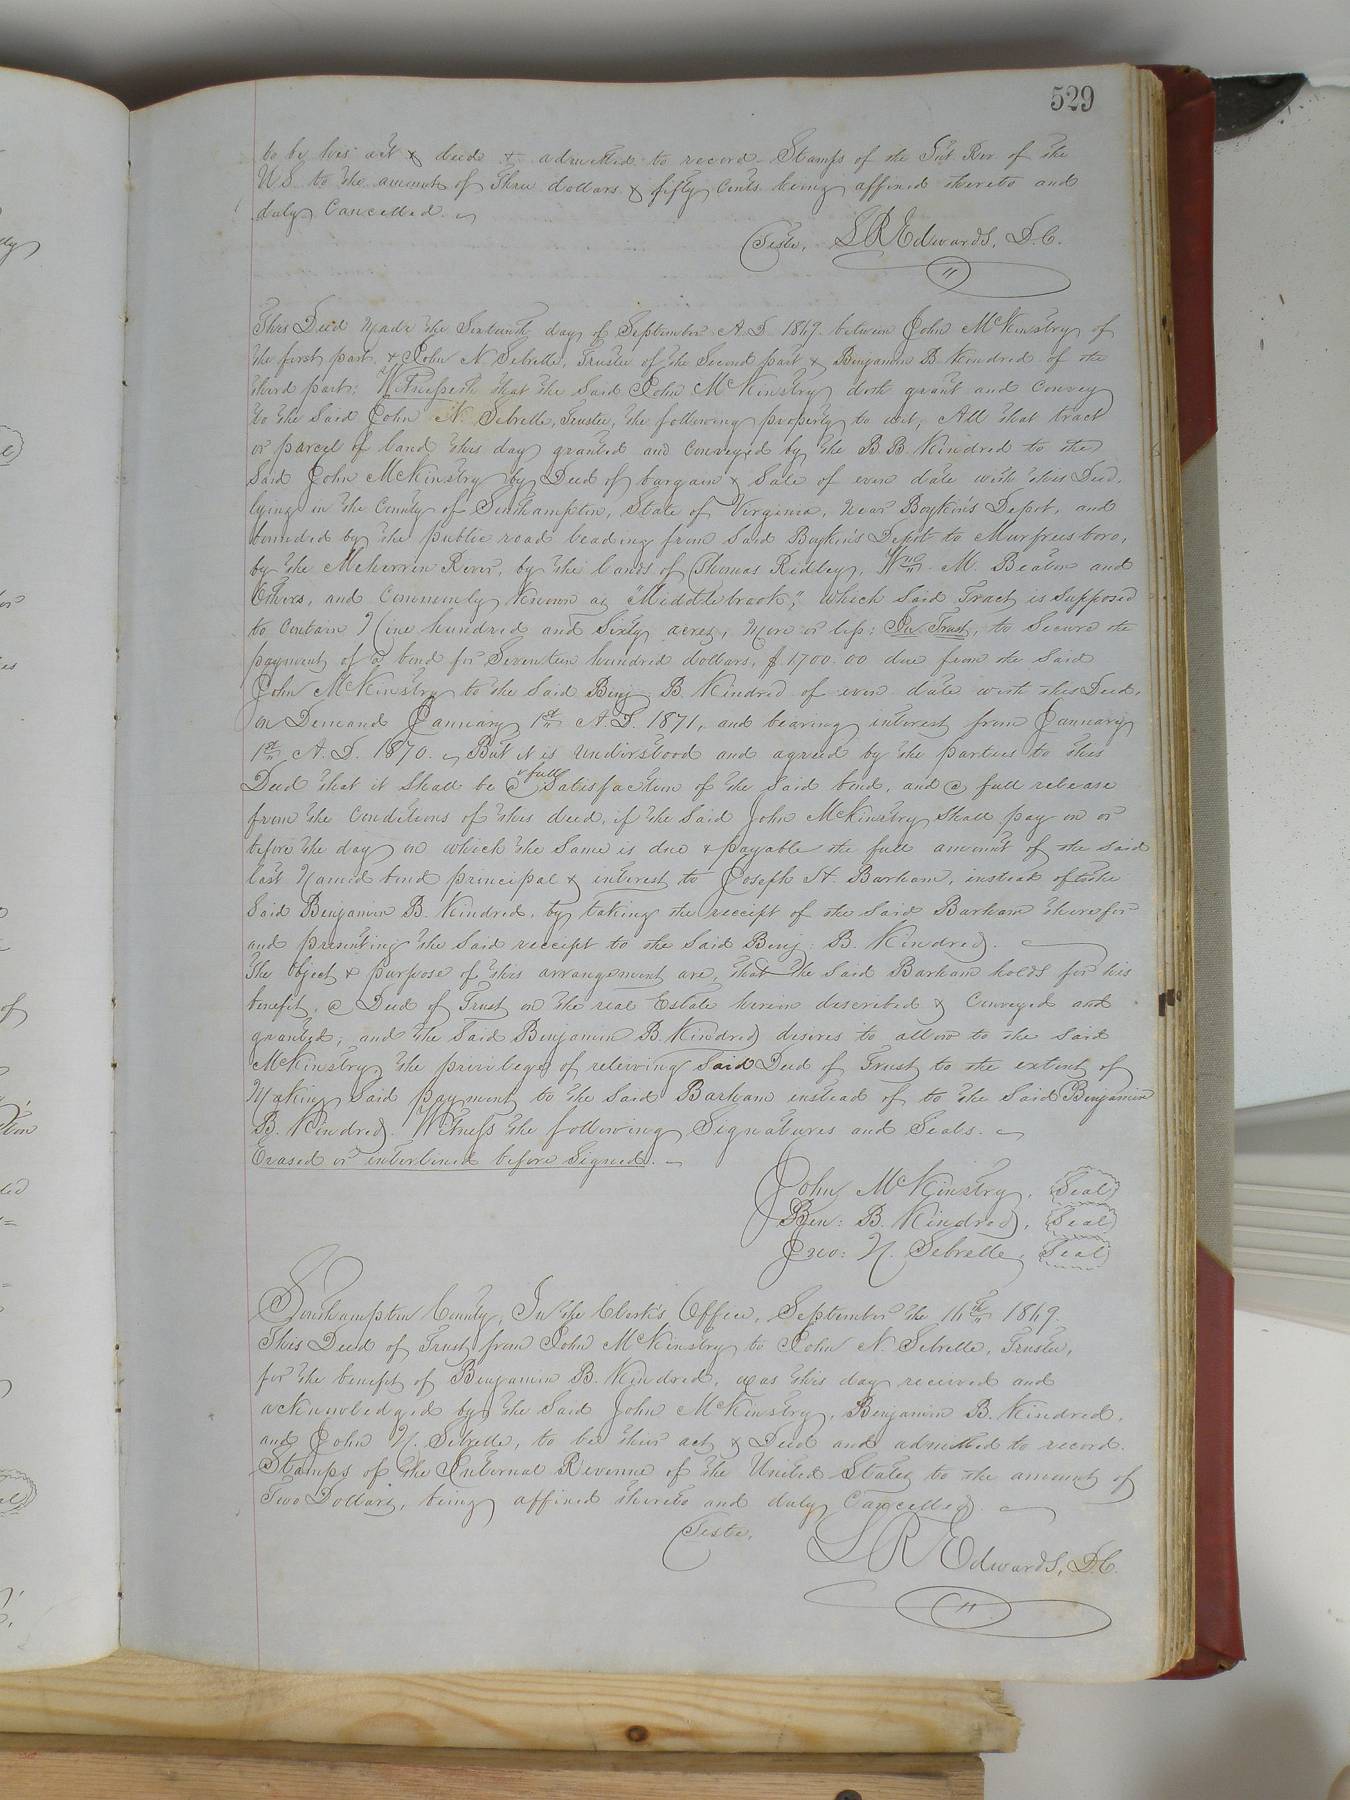 529
to be his act & deed & admitted to record. Stamps of the Int Rev of the
U.S. to the amount of Three dollars & fifty Cents being affixed thereto and
duly Cancelled.
Teste, L R Edwards, D.C.
This Deed Made the Sixteenth day of September A.D. 1869. between John McKinstry of
the first part & John N. Sebrelle, Trustee of the Second part & Benjamin B Kindred of the
third part: Witnesseth that the Said John McKinstry doth grant and Convey
to the Said John N. Sebrelle, Trustee, the following property to wit, All that tract
or parcel of land this day granted and Conveyed by the B.B. Kindred to the
Said John McKinstry by Deed of bargain & Sale of even date with this Deed,
lying in the County of Southampton, State of Virginia, Near Boykin's Depot, and
bounded by the public road leading from Said Boykin's Depot to Murfreesboro,
by the Meherrin River, by the lands of Thomas Ridley, Wm. M. Beaton and
Others, and Commonly Known as "Middlebrook," which Said Tract is Supposed
to Contain Nine hundred and Sixty acres, More or less: In Trust, to Secure the
payment of a bond for Seventeen hundred dollars, $1700.00 due from the Said
John McKinstry to the Said Benj: B. Kindred of even date with this Deed,
on Demand January 1st A.D. 1871, and bearing interest from January
1st A.D. 1870. But it is understood and agreed by the parties to this
Deed that it Shall be a full Satisfaction of the Said bond, and a full release
from the Conditions of this deed, if the Said John McKinstry Shall pay on or
before the day on which the Same is due & payable the full amount of the Said
last Named bond principal & interest to Joseph H. Barham, instead of to the
Said Benjamin B. Kindred, by taking the receipt of the Said Barham therefor
and presenting the Said receipt to the Said Benj: B. Kindred.
The Object & purpose of this arrangement are, that the Said Barham holds for his
benefit, a Deed of Trust on the real Estate herein described & Conveyed and
granted; and the Said Benjamin B. Kindred desires to allow to the Said
McKinstry the privilege of relieving Said Deed of Trust to the extent of
Making Said payment to the Said Barham instead of to the Said Benjamin
B. Kindred. Witness the following Signatures and Seals.
Erased or interlined before Signed.
John McKinstry, Seal
Ben: B. Kindred, Seal
Jno: N. Sebrelle, Seal
Southampton County, In the Clerk's Office, September the 16th 1869.
This Deed of Trust from John McKinstry to John N. Sebrelle, Trustee,
for the benefit of Benjamin B. Kindred, was this day received and
acknowledged by the Said John McKinstry, Benjamin B. Kindred,
and John N. Sebrelle, to be their act & Deed and admitted to record.
Stamps of the Internal Revenue of the United States to the amount of
Two Dollars, being affixed thereto and duly Cancelled.
Teste, L R Edwards, D.C.